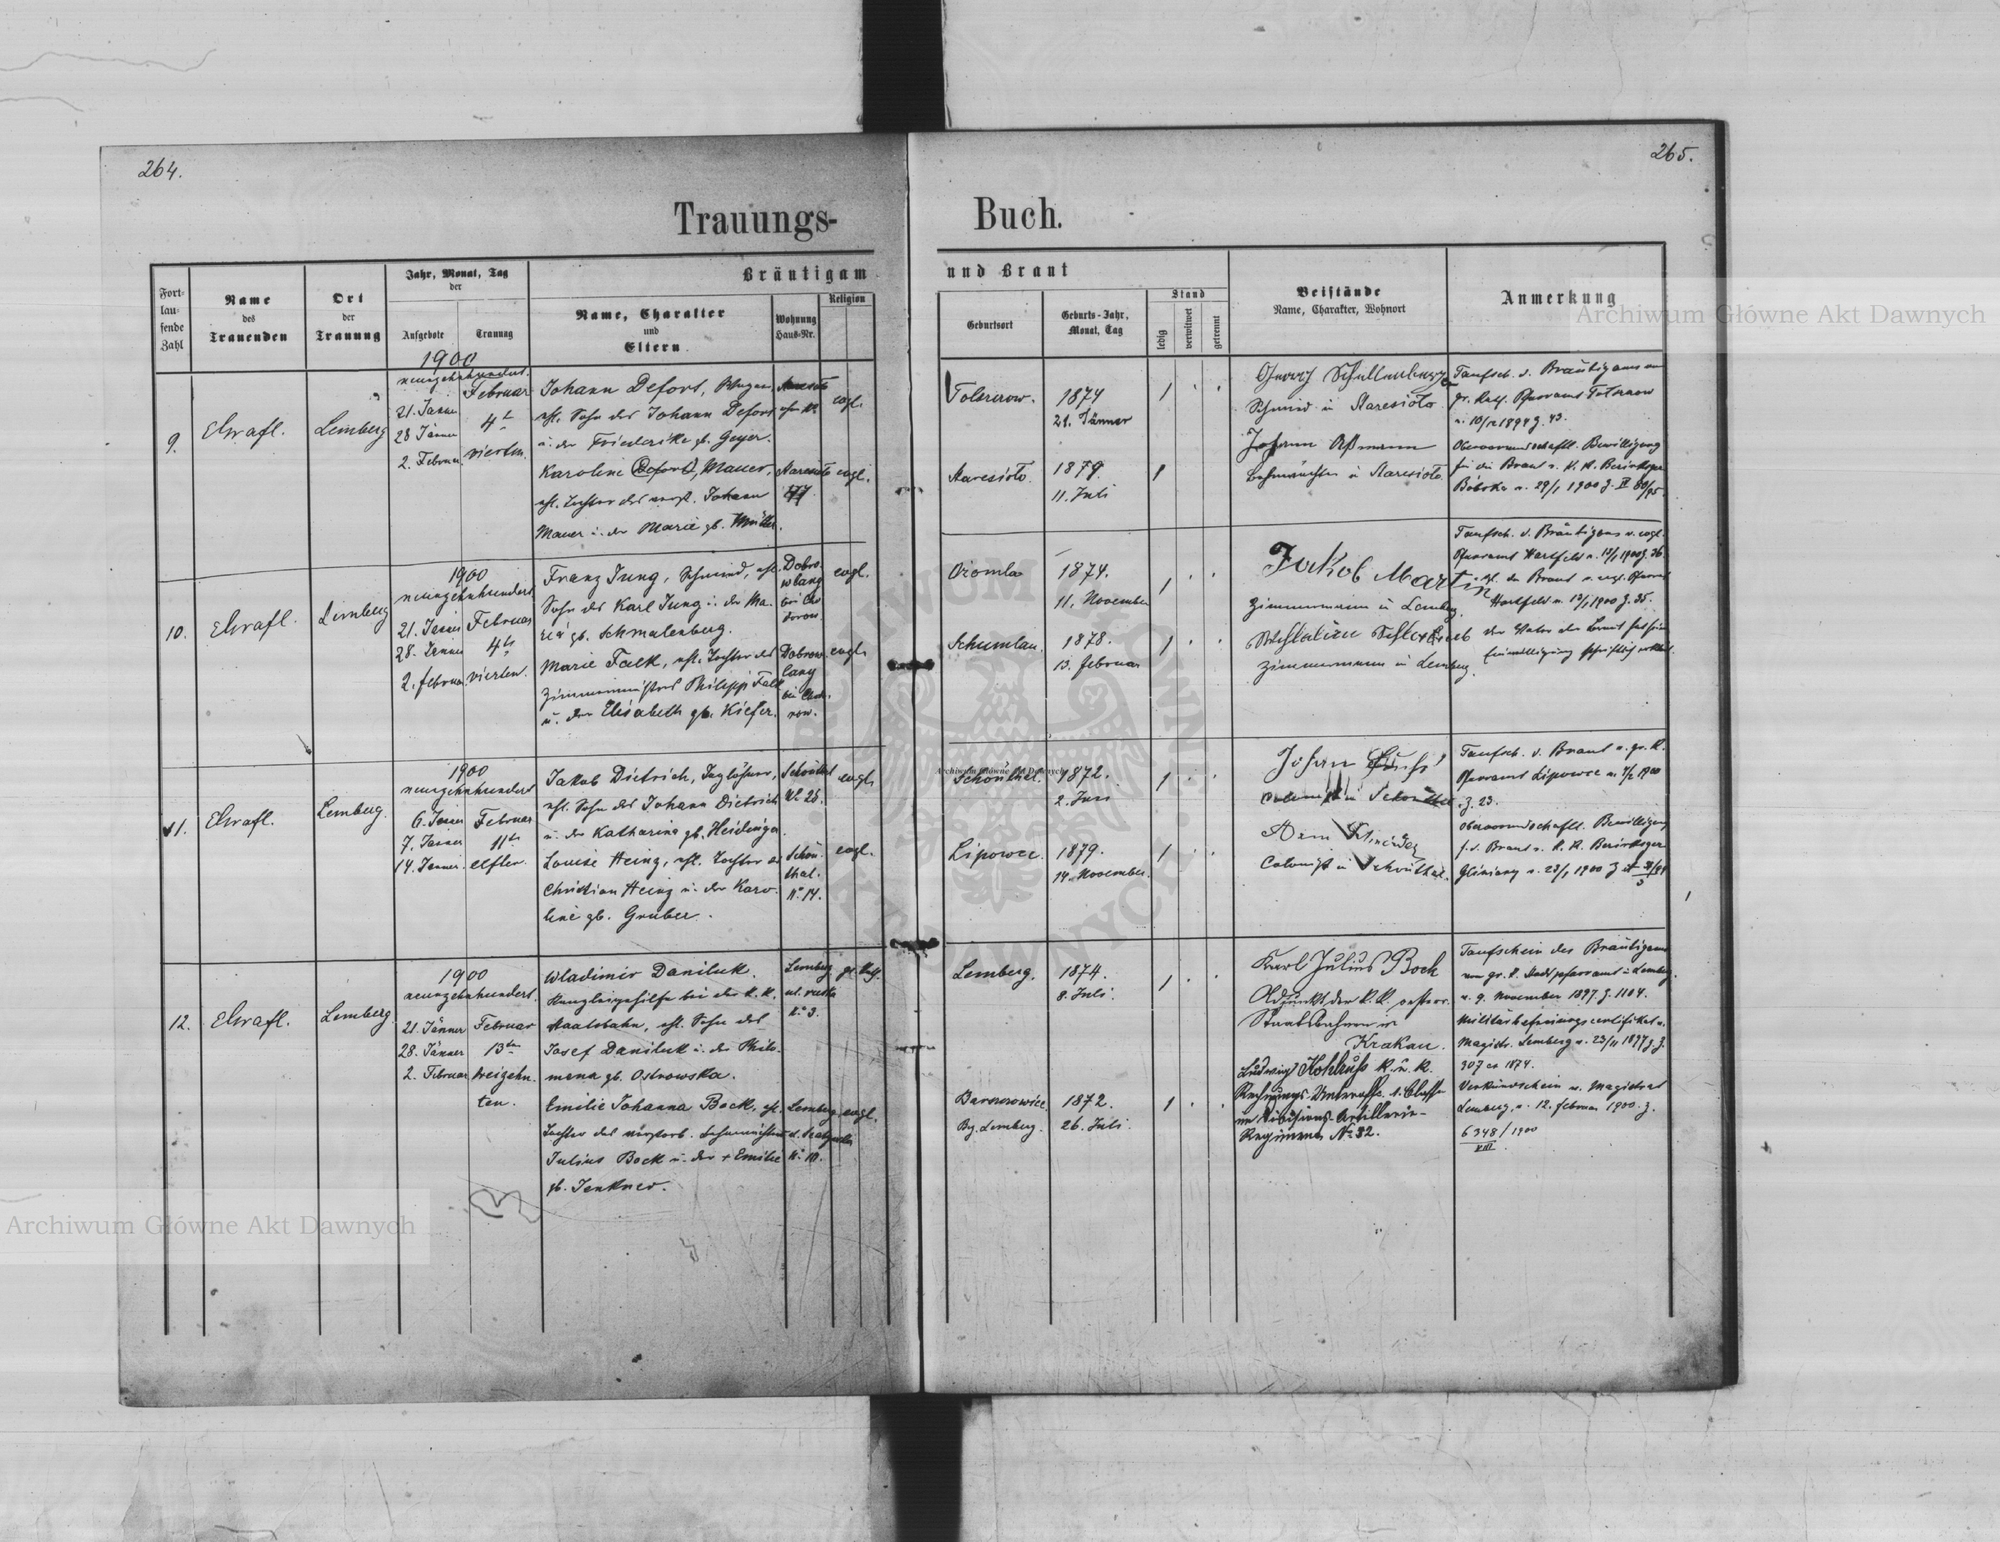 264.
265.
Trauungs-
Buch.
Fort-
lau-
fende
Zahl
Name
des
Trauenden
Ort
der
Trauung
Jahr, Monat, Tag
der
Aufgebote
Trauung
Bräutigam
Name, Charakter
und
Eltern
Wohnung
Haus-Nr.
Religion
und Braut
Geburtsort
Geburts-Jahr,
Monat, Tag
Stand
ledig
verwitwet
getrennt
Beistände
Name, Charakter, Wohnort
Anmerkung
9.
Lemberg
1900
neunzehnhundert
21. Jänner
28 Jänner
2. Februar
Februar
4t
vierten
Johann Defort,
ehl. Sohn des Johann Defort
u. der Friedericke gb. Geyer.
evgl.
Karoline Defort, Mauer,
ehl. Tochter des verst. Johann
Mauer u. der Marie gb. Müller.
Staresioło
evgl.
1874
21. Jänner
1
Staresioło.
1879
11. Juli
1
Georg Schullenberger
Schmied in Staresioło.
Johann Aßmann
Bahnwächter in Staresioło
Taufsch. d. Bräutigams
Obervormundschaftl. Bewilligung
für die Braut v. K. K. Bezirksger
Bóbrka v. 29/1 1900 Z.
10.
Lemberg
1900
neunzehnhundert
21. Jänner
28. Jänner
2. Februar
Februar
4te
vierten.
Franz Jung, Schmied, ehl.
Sohn des Karl Jung u. der Ma-
ria gb. Schmalenberg.
Dobro-
wlany
bei Cho
dorow
evgl.
Marie Falk, ehl. Tochter des
Zimmermeisters Philipp Falk
u. der Elisabeth gb. Kiefer.
Dobrow-
lany
bei Cho-
row.
evgl.
1874.
11. November
1
Schumlau.
1878.
13. Februar
1
Jakob Martin
Zimmermann in Lemberg.
Zimmermann in Lemberg
Taufsch. d. Bräutigams v. evgl.
Pfarramt Hartfeld v. 13/1 1900 Z. 36
Hartfeld v. 13/1 1900 Z. 35.
der Vater der Braut hat seine
Einwilligung schriftlich erklärt.
11.
Lemberg.
1900
neunzehnhundert
6. Jänner
7. Jänner
14. Jänner
Februar
11te
elften.
Jakob Dietrich, Taglöhner,
ehl. Sohn des Johann Dietrich
u. der Katharina gb. Heidinger.
Schönthal
No 28.
evgl.
Louise Heinz, ehl. Tochter des
Christian Heinz u. der Karo-
line gb. Gruber.
Schön-
thal.
No 14.
evgl.
Schönthal.
1872.
2. Juni
1
Lipowce.
1879.
14. November.
1
Johann
Colonist in Schönthal
Colonist in Schönthal.
Taufsch. d. Braut v. gr. K.
Pfarramt Lipowce v. 7/2 1900
Z. 23.
Obervormundschaftl. Bewilligung
f. d. Braut v. K. K. Bezirksger
Gliniany v. 23/1 1900 Z
12.
Lemberg
1900
neunzehnhundert.
21. Jänner
28. Jänner
2. Februar
Februar
13te
dreizehn-
ten.
Wladimir Daniluk.
Kanzleigehilfe bei der K. K.
Staatsbahn, ehl. Sohn des
Josef Daniluk u. der Philo-
mena gb. Ostrowska.
Lemberg
ul. ruska
No 3.
gr. Kath.
Emilie Johanna Bock, ehl.
Tochter des verstorb. Bahnwächters
Julius Bock u. der + Emilie
gb. Jenkner.
Lemberg
No 10.
evgl.
Lemberg.
1874.
8. Juli.
1
Barszczowice
Bz. Lemberg.
1872.
26. Juli.
1
Karl Julius Bock
Adjunkt der K.K. oesterr.
Staatsbahnen in
Krakau.
Ludwig Kohlruss K. u. K.
Rechnungs-Unteroff. 1. Classe
im Divisions-Artillerie-
Regiment No 32.
Taufschein des Bräutigams
vom gr. K. Stadtpfarramt in Lemberg.
v. 9. November 1897 Z. 1104.
Militärbefreiungscertifikat v.
Magistr. Lemberg v. 23/11 1897 Z.
307 ex 1874.
Verkündschein v. Magistrat
Lemberg, v. 12. Februar 1900. Z.
6348/1900
VIII
Archiwum Główne Akt Dawnych
Archiwum Główne Akt Dawnych
Archiwum Główne Akt Dawnych